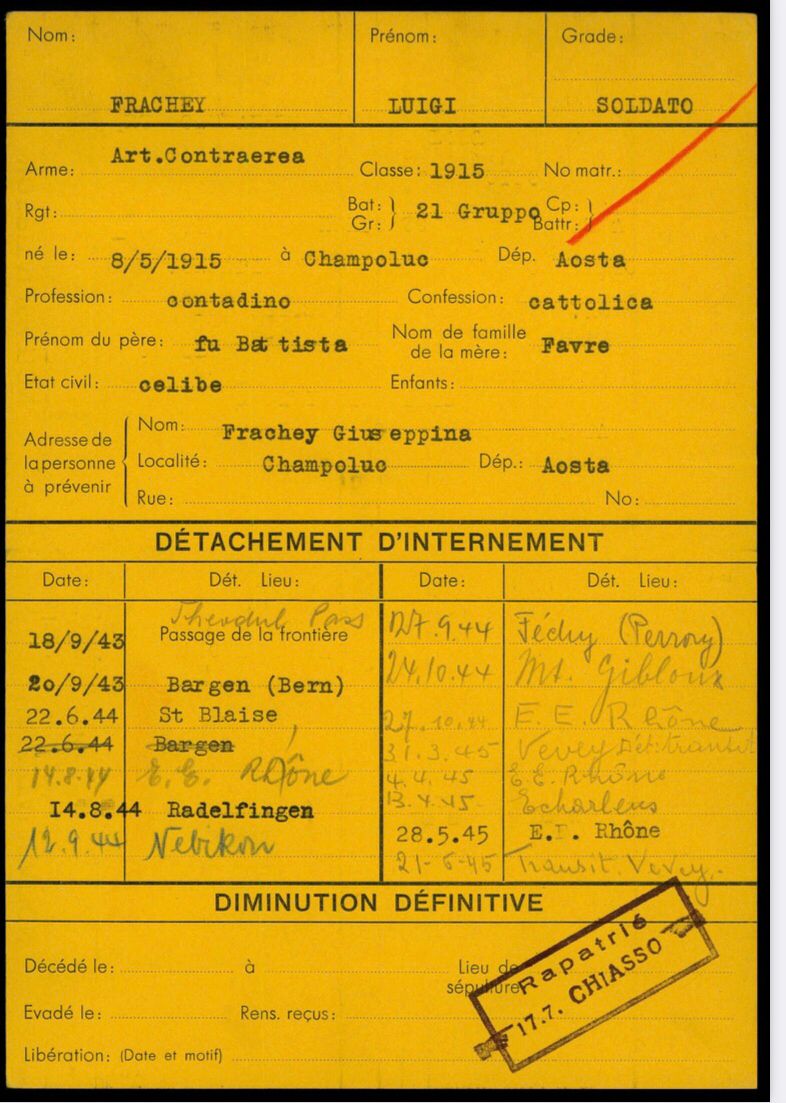 Nom: Prénom: Grade:
FRACHEY LUIGI SOLDATO
Arme: Art.Contraerea Classe: 1915 No matr.:
Rgt: Bat: Gr: } 21 Gruppo Cp: Battr: }
né le: 8/5/1915 à Champoluc Dép. Aosta
Profession: contadino Confession: cattolica
Prénom du père: fu Battista Nom de famille de la mère: Favre
Etat civil: celibe Enfants:
Adresse de la personne à prévenir
Nom: Frachey Giuseppina
Localité: Champoluc Dép.: Aosta
Rue: No:
DÉTACHEMENT D'INTERNEMENT
Date: Dét. Lieu: Date: Dét. Lieu:
Theodul Pass
18/9/43 Passage de la frontière 27.9.44 Féchy (Perroy)
20/9/43 Bargen (Bern) 24.10.44 Mt. Gibloux
22.6.44 St Blaise 27.10.44 E. E. Rhône
22.6.44 Bargen 31.3.45 Vevey Dét. transit
14.8.44 E. E. Rhône 4.4.45 E.E. Rhône
14.8.44 Radelfingen 13.4.45 Echarlens
12.9.44 Nebikon 28.5.45 E.E. Rhône
21-6-45 Transit. Vevey.
DIMINUTION DÉFINITIVE
Décédé le: à Lieu de sépulture
Evadé le: Rens. reçus:
Libération: (Date et motif)
Rapatrié
17.7. CHIASSO